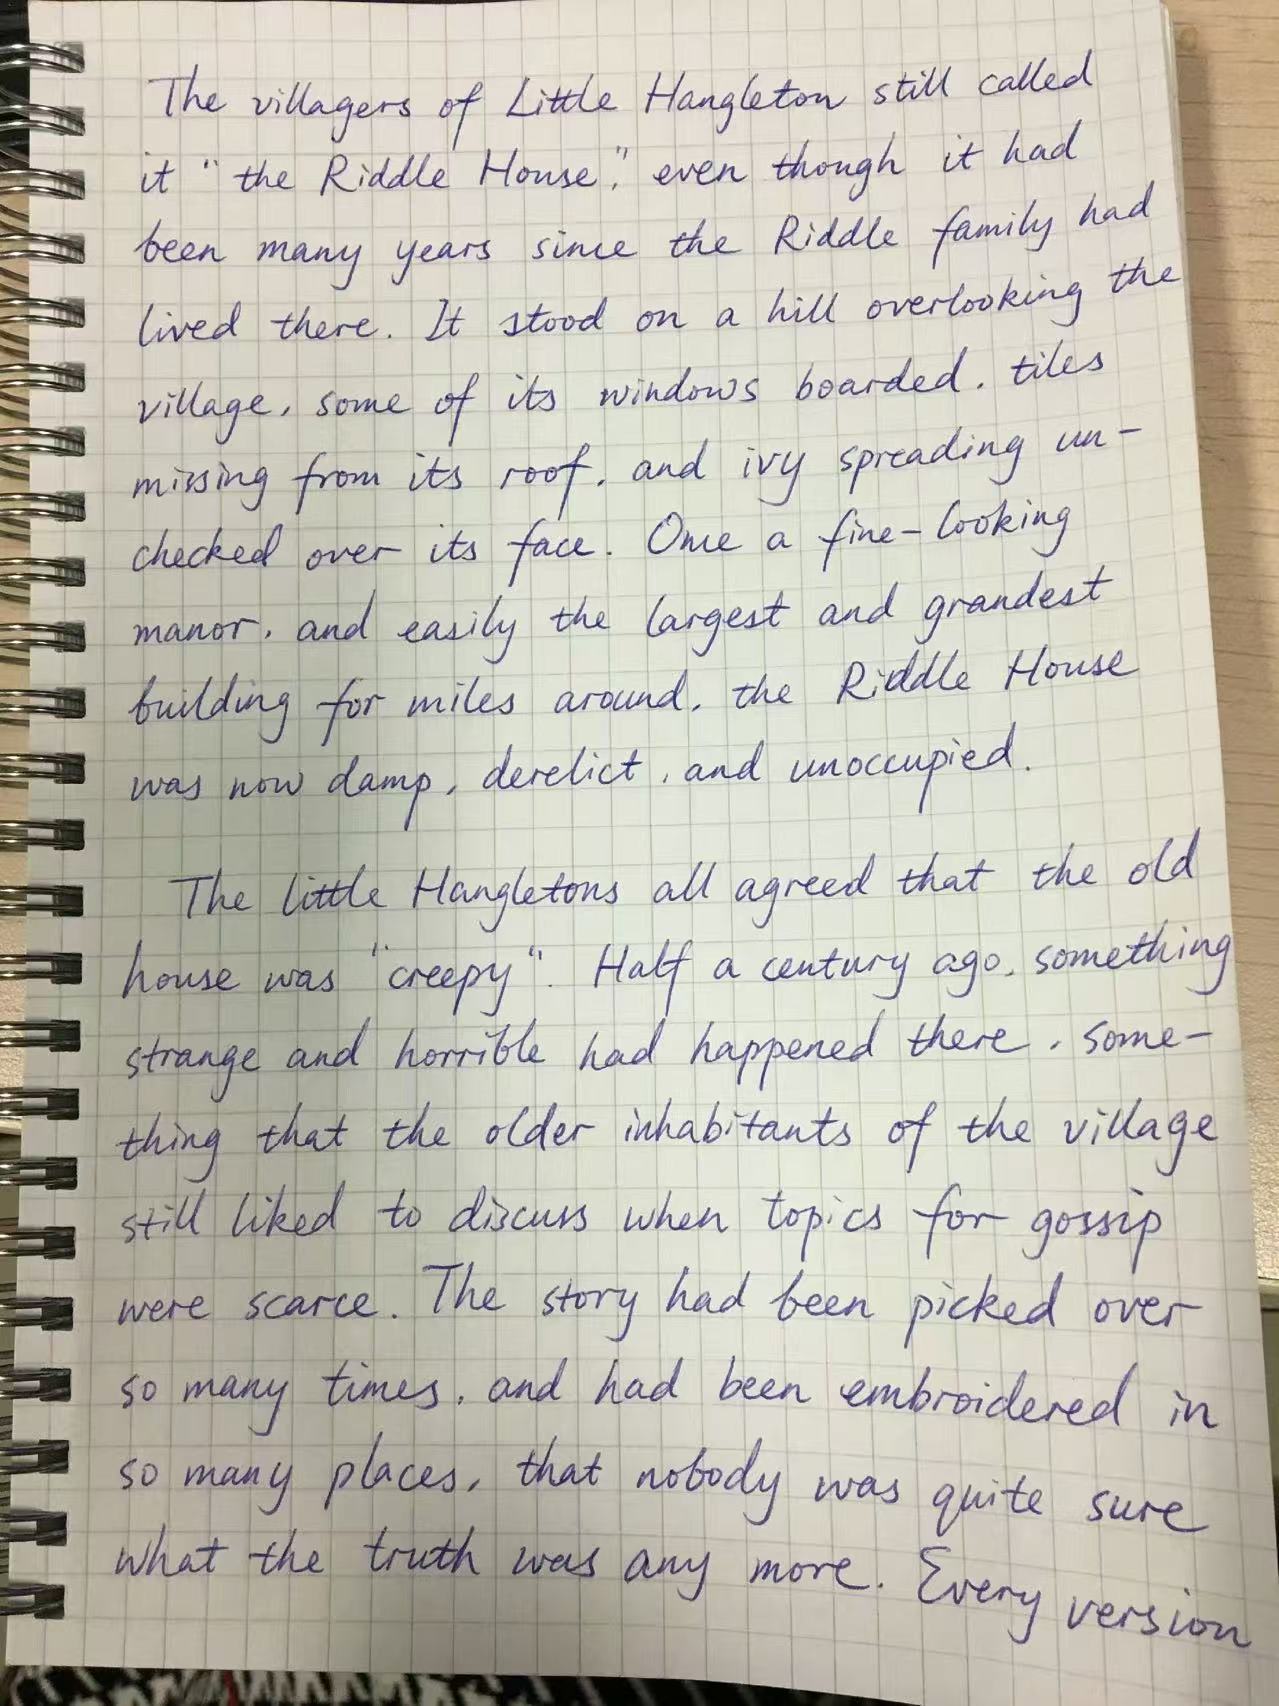 The villagers of Little Hangleton still called
it "the Riddle House," even though it had
been many years since the Riddle family had
lived there. It stood on a hill overlooking the
village, some of its windows boarded, tiles
missing from its roof, and ivy spreading un-
checked over its face. Once a fine-looking
manor, and easily the largest and grandest
building for miles around, the Riddle House
was now damp, derelict, and unoccupied.
The little Hangletons all agreed that the old
house was "creepy". Half a century ago, something
strange and horrible had happened there, some-
thing that the older inhabitants of the village
still liked to discuss when topics for gossip
were scarce. The story had been picked over
so many times, and had been embroidered in
so many places, that nobody was quite sure
what the truth was any more. Every version